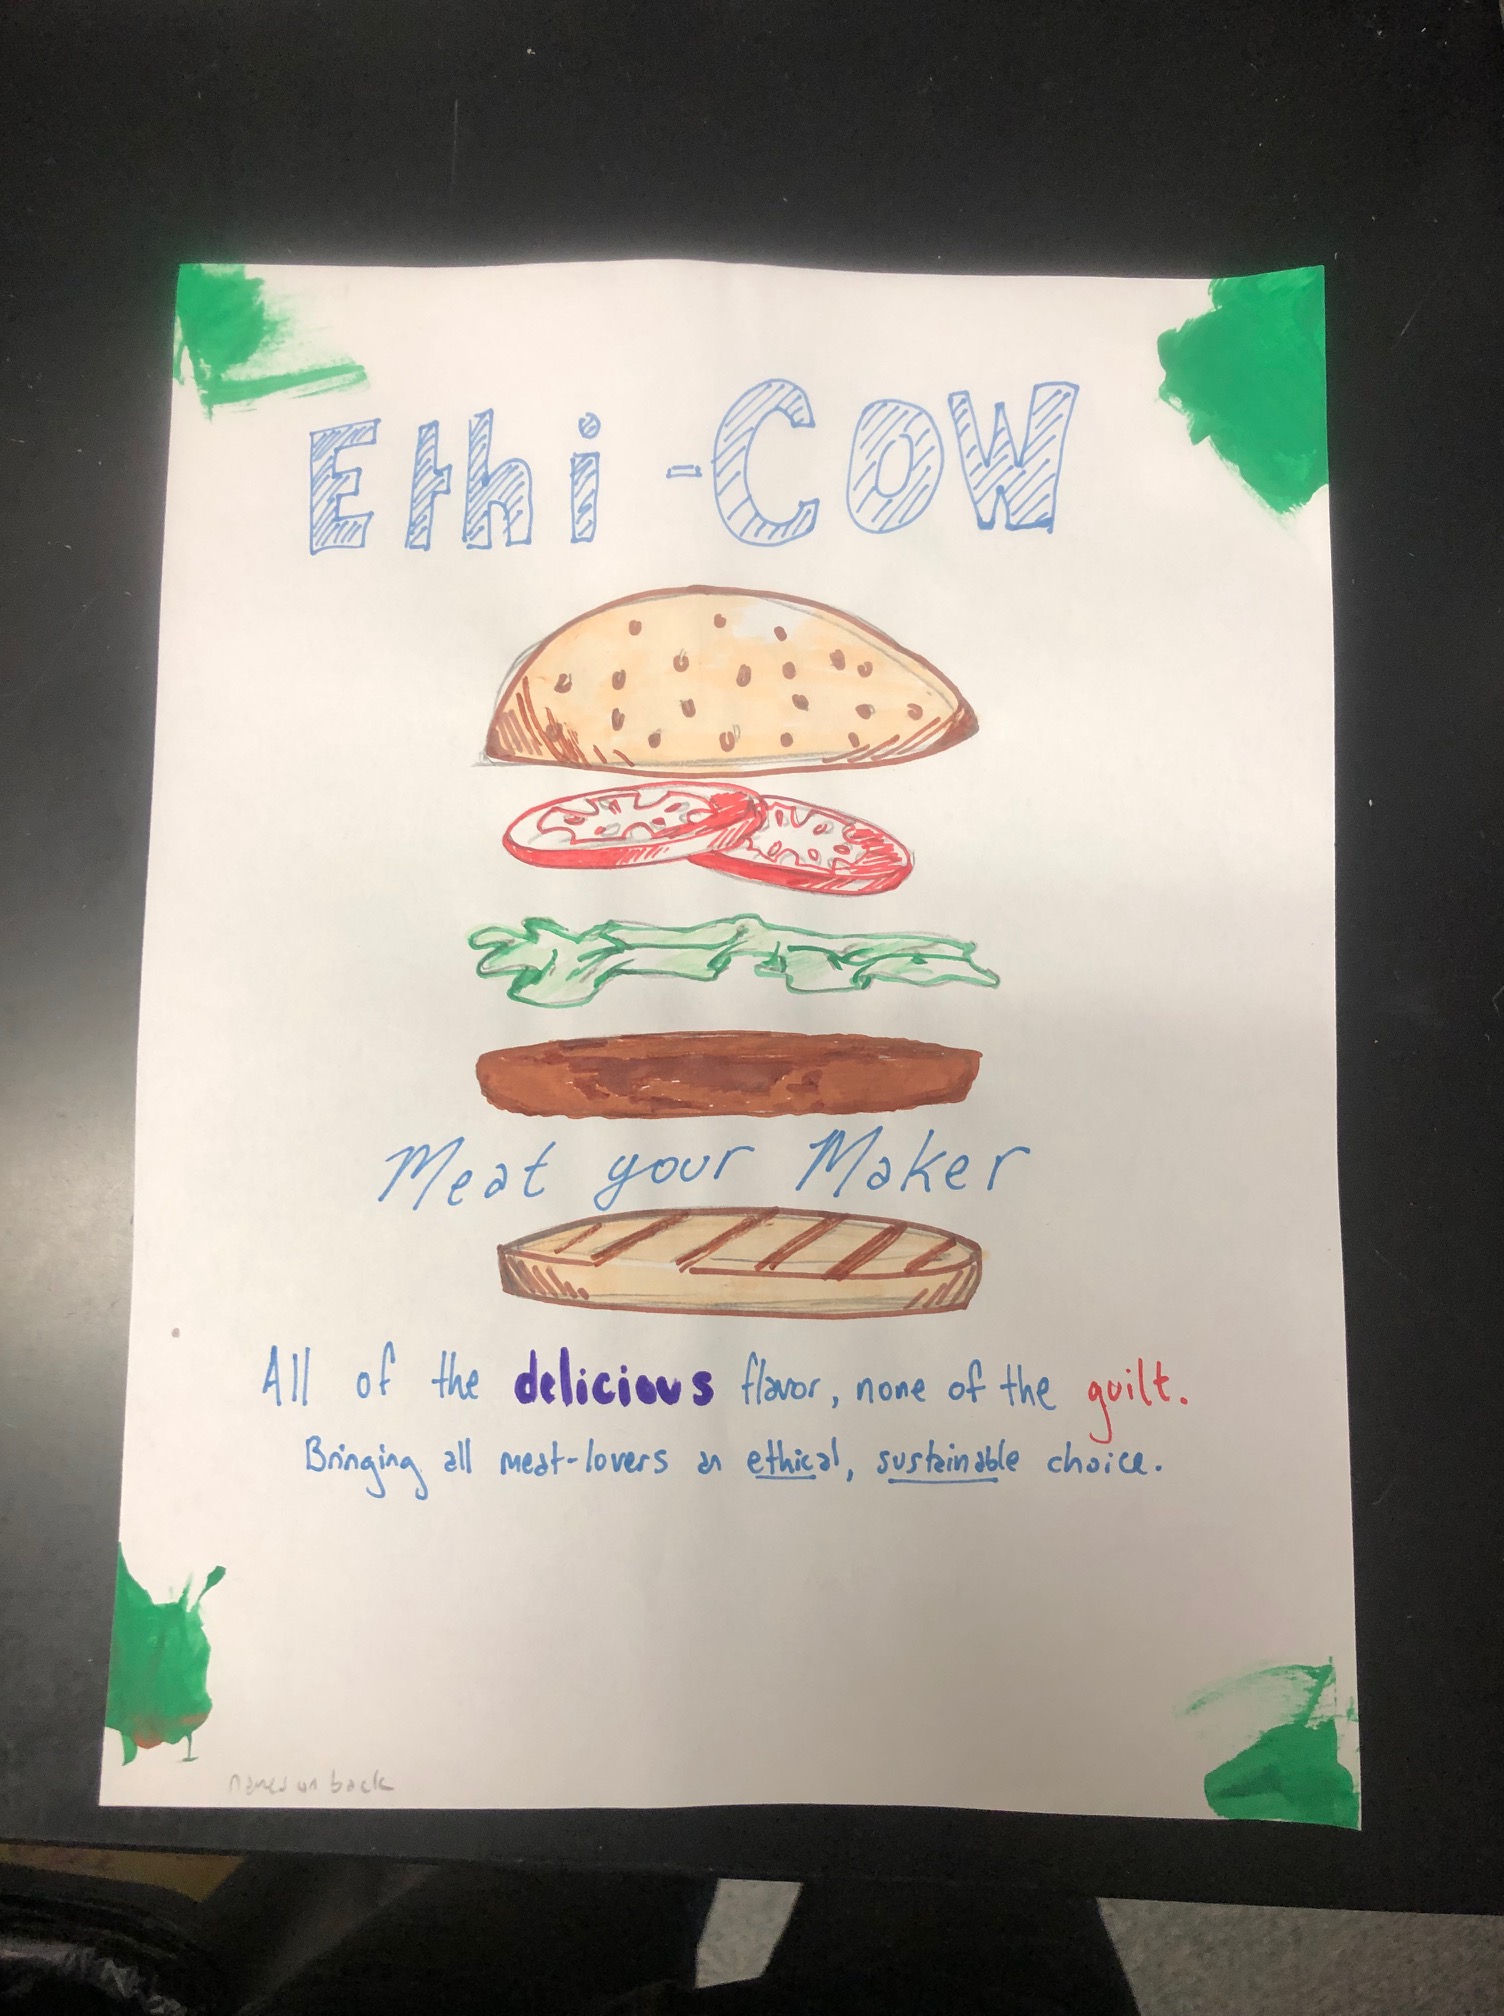 Ethi-COW
Meat your Maker
All of the delicious flavor, none of the guilt.
Bringing all meat-lovers an ethical, sustainable choice.
names on back